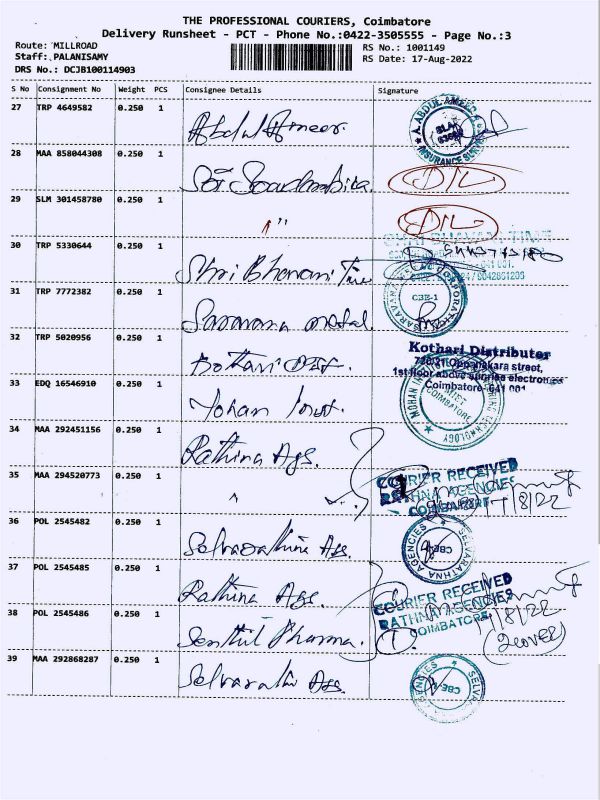 THE PROFESSIONAL COURIERS, Coimbatore
Delivery Runsheet - PCT - Phone No.:0422-3505555 - Page No.:3
Route: MILLROAD
RS No.: 1001149
Staff: PALANISAMY
RS Date: 17-Aug-2022
DRS No.: DCJB100114903
S No Consignment No Weight PCS Consignee Details Signature
27 TRP 4649582 0.250 1 Abdul Ameer.
A. ABDUL AMEER
INSURANCE
28 MAA 858044308 0.250 1 Sri
29 SLM 301458780 0.250 1 "
30 TRP 5330644 0.250 1 Shri Bhavani
31 TRP 7772382 0.250 1 Saravana metal
CBE-1
32 TRP 5020956 0.250 1
Kothari Distributor
Oppanakara street,
1st floor above sunrise electronics
Coimbatore- 641 001
33 EDQ 16546910 0.250 1 Mohan
COIMBATORE
34 MAA 292451156 0.250 1 Rathina Ags.
35 MAA 294520773 0.250 1
COURIER RECEIVED
RATHNA AGENCIES
COIMBATORE
17/8/22
36 POL 2545482 0.250 1 Selvarathina Ags.
SELVARATHNA AGENCIES
CBE-1
37 POL 2545485 0.250 1 Rathina Ags.
COURIER RECEIVED
RATHNA AGENCIES
COIMBATORE
17/8/22
(2 covers)
38 POL 2545486 0.250 1 Senthil Pharma.
39 MAA 292868287 0.250 1 Selvarathi Ags.
CBE-1